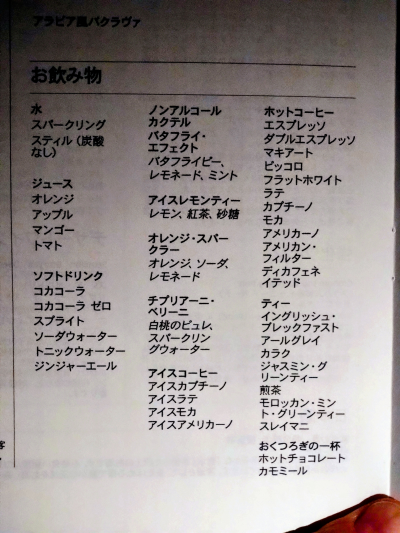 アラビア風バクラヴァ
お飲み物
水
スパークリング
スティル（炭酸
なし）
ジュース
オレンジ
アップル
マンゴー
トマト
ソフトドリンク
コカコーラ
コカコーラ ゼロ
スプライト
ソーダウォーター
トニックウォーター
ジンジャーエール
ノンアルコール
カクテル
バタフライ・
エフェクト
バタフライピー、
レモネード、ミント
アイスレモンティー
レモン、紅茶、砂糖
オレンジ・スパー
クラー
オレンジ、ソーダ、
レモネード
チプリアーニ・
ベリーニ
白桃のピュレ、
スパークリン
グウォーター
アイスコーヒー
アイスカプチーノ
アイスラテ
アイスモカ
アイスアメリカーノ
ホットコーヒー
エスプレッソ
ダブルエスプレッソ
マキアート
ピッコロ
フラットホワイト
ラテ
カプチーノ
モカ
アメリカーノ
アメリカン・
フィルター
ディカフェネ
イテッド
ティー
イングリッシュ・
ブレックファスト
アールグレイ
カラク
ジャスミン・グ
リーンティー
煎茶
モロッカン・ミン
ト・グリーンティー
スレイマニ
おくつろぎの一杯
ホットチョコレート
カモミール
客